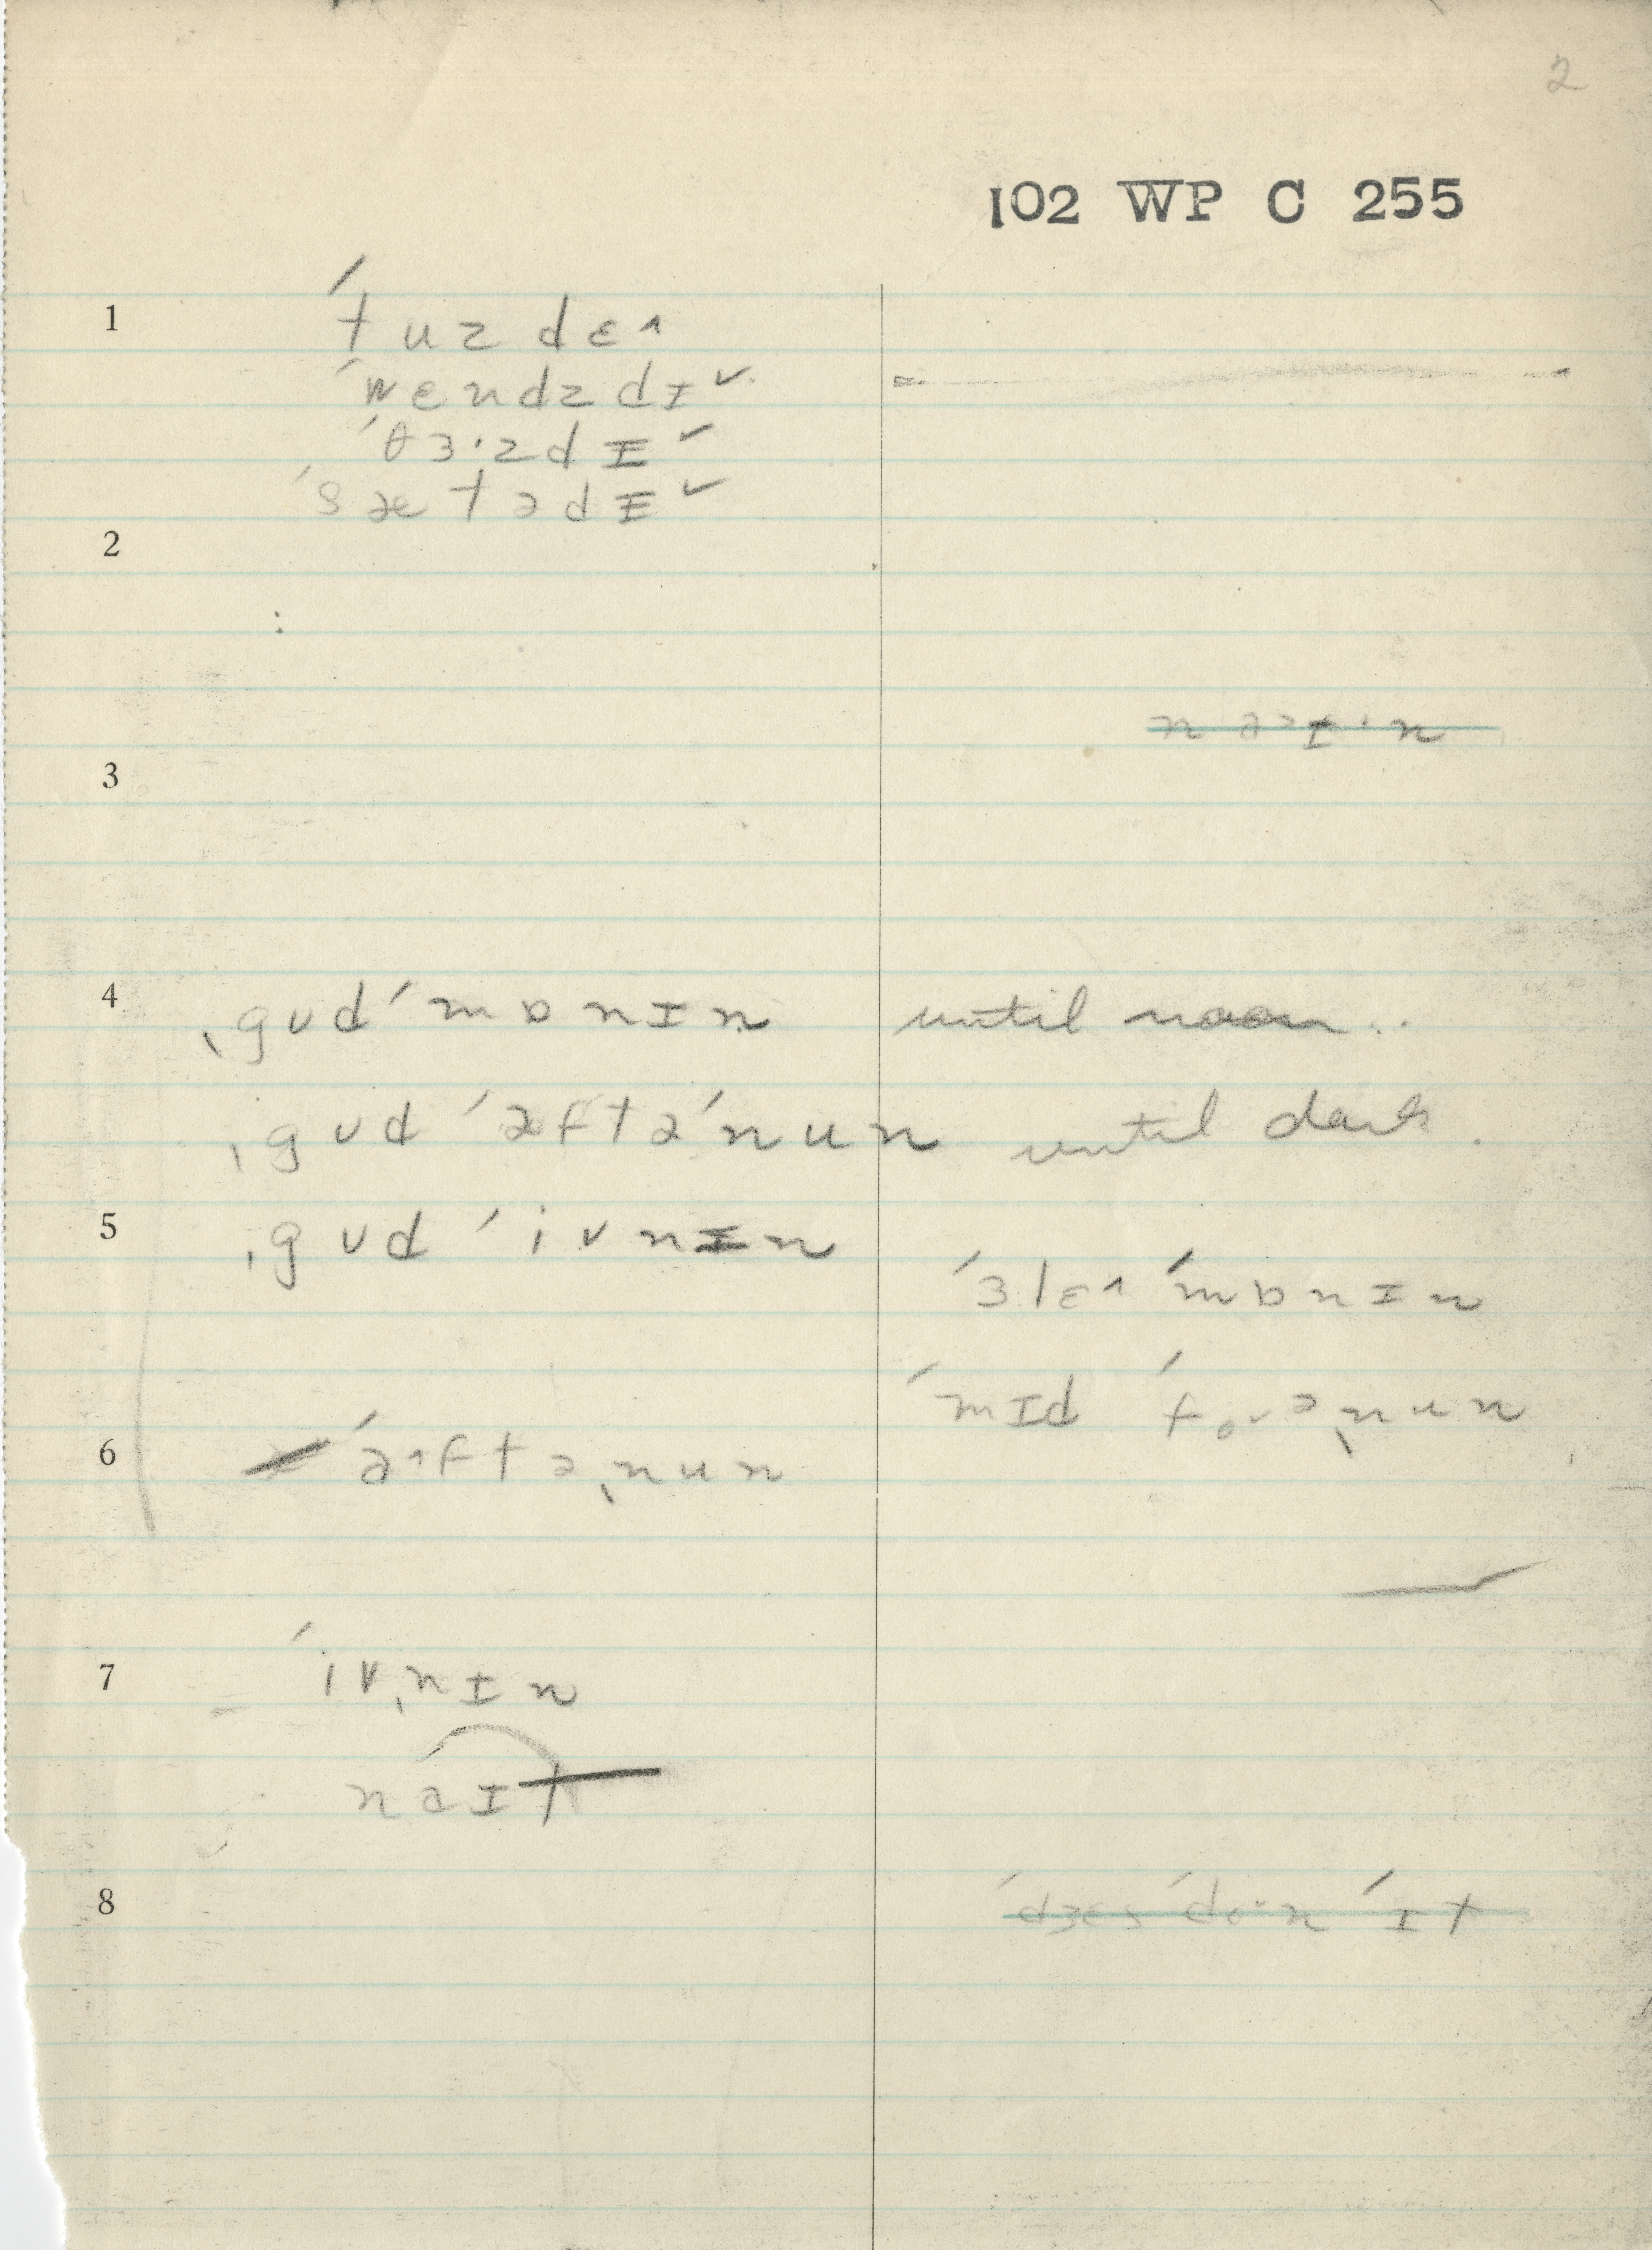 2
102 WP C 255
1 ˈtuzdɛ˄
ˈwendzdɪ ✓
ˈθɜ·zdɪ ✓
ˈsætədɪ ✓
2
3
4 ˌgʊdˈmɒnɪn until noon..
ˌgʊd ˈæftəˈnun until dark.
5 ˌgʊd ˈivnɪn
ˈɜlɛ˄ ˈmɒnɪn
ˈmɪd ˈfoʊəˌnun
6 ˈæ˄ftəˌnun
7 ˈivˌnɪn
náɪt
8